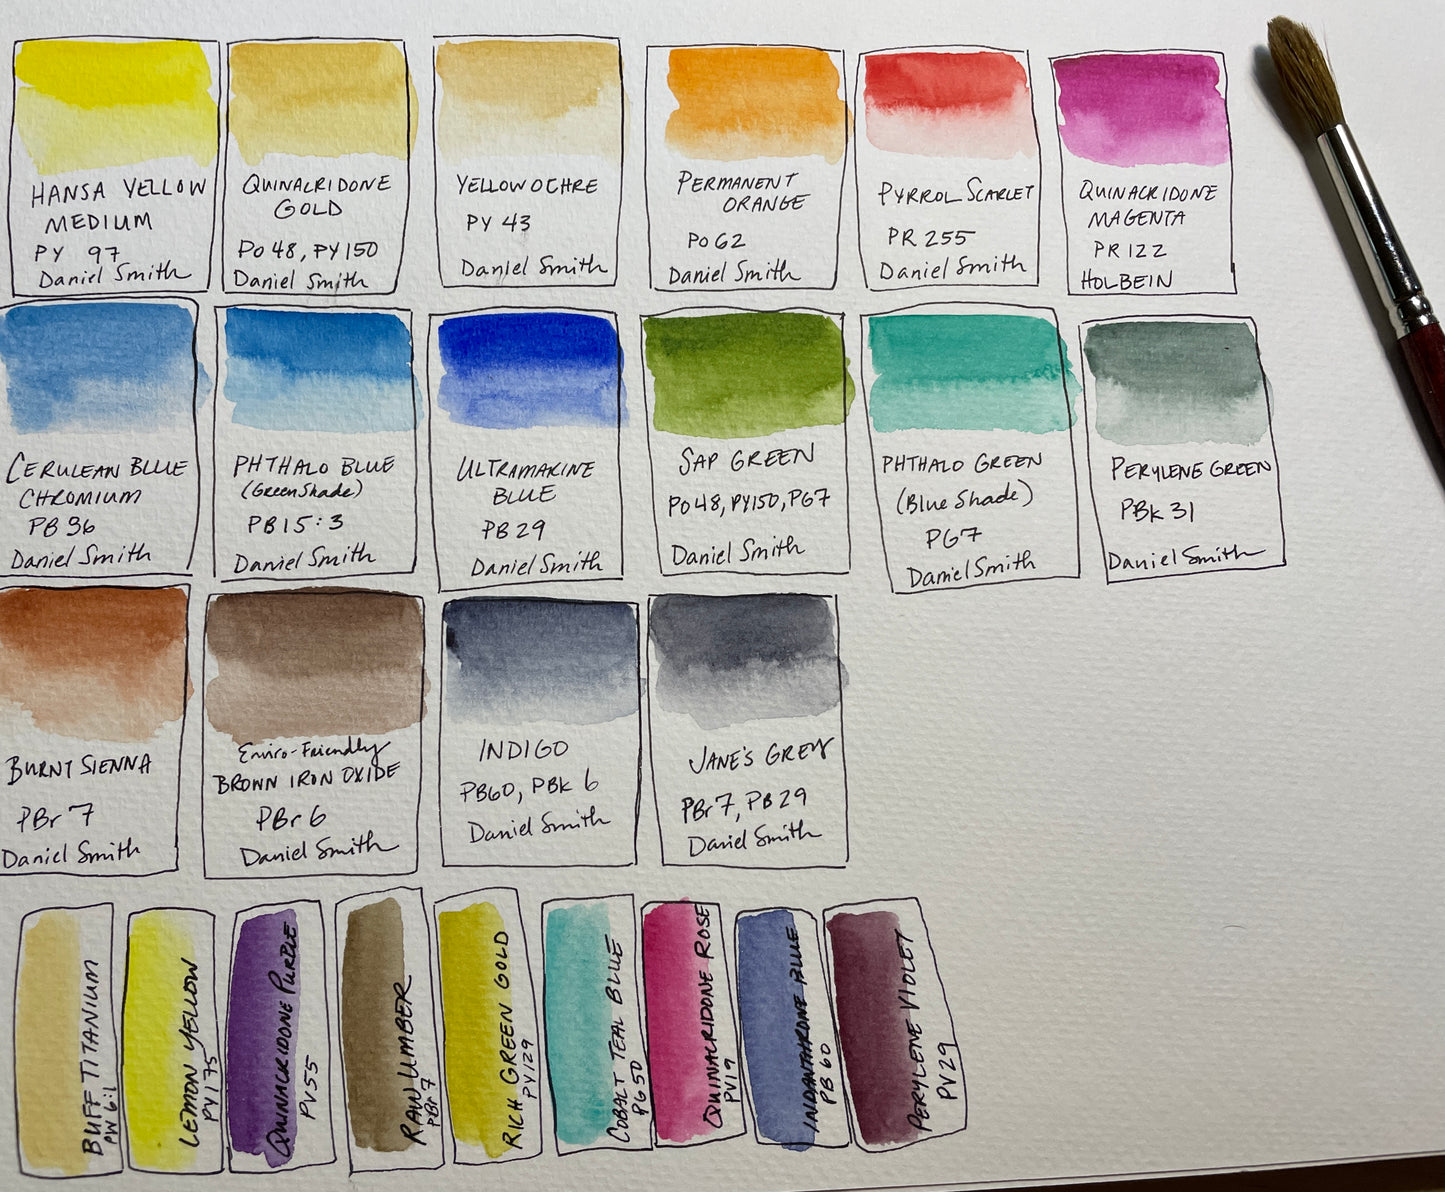 HANSA YELLOW
MEDIUM
PY 97
Daniel Smith
QUINACRIDONE
GOLD
PO48, PY150
Daniel Smith
YELLOW OCHRE
PY 43
Daniel Smith
PERMANENT
ORANGE
PO62
Daniel Smith
PYRROL SCARLET
PR 255
Daniel Smith
QUINACRIDONE
MAGENTA
PR122
HOLBEIN
CERULEAN BLUE
CHROMIUM
PB 36
Daniel Smith
PHTHALO BLUE
(Green Shade)
PB15:3
Daniel Smith
ULTRAMARINE
BLUE
PB 29
Daniel Smith
SAP GREEN
PO48, PY150, PG7
Daniel Smith
PHTHALO GREEN
(Blue Shade)
PG7
Daniel Smith
PERYLENE GREEN
PBk 31
Daniel Smith
BURNT SIENNA
PBr 7
Daniel Smith
Enviro-Friendly
BROWN IRON OXIDE
PBr 6
Daniel Smith
INDIGO
PB60, PBk 6
Daniel Smith
JANE'S GREY
PBr 7, PB 29
Daniel Smith
BUFF TITANIUM
PW 6:1
LEMON YELLOW
PY175
QUINACRIDONE PURPLE
PV55
RAW UMBER
PBr 7
RICH GREEN GOLD
PY129
COBALT TEAL BLUE
PG 50
QUINACRIDONE ROSE
PV19
INDANTHRONE BLUE
PB 60
PERYLENE VIOLET
PV29